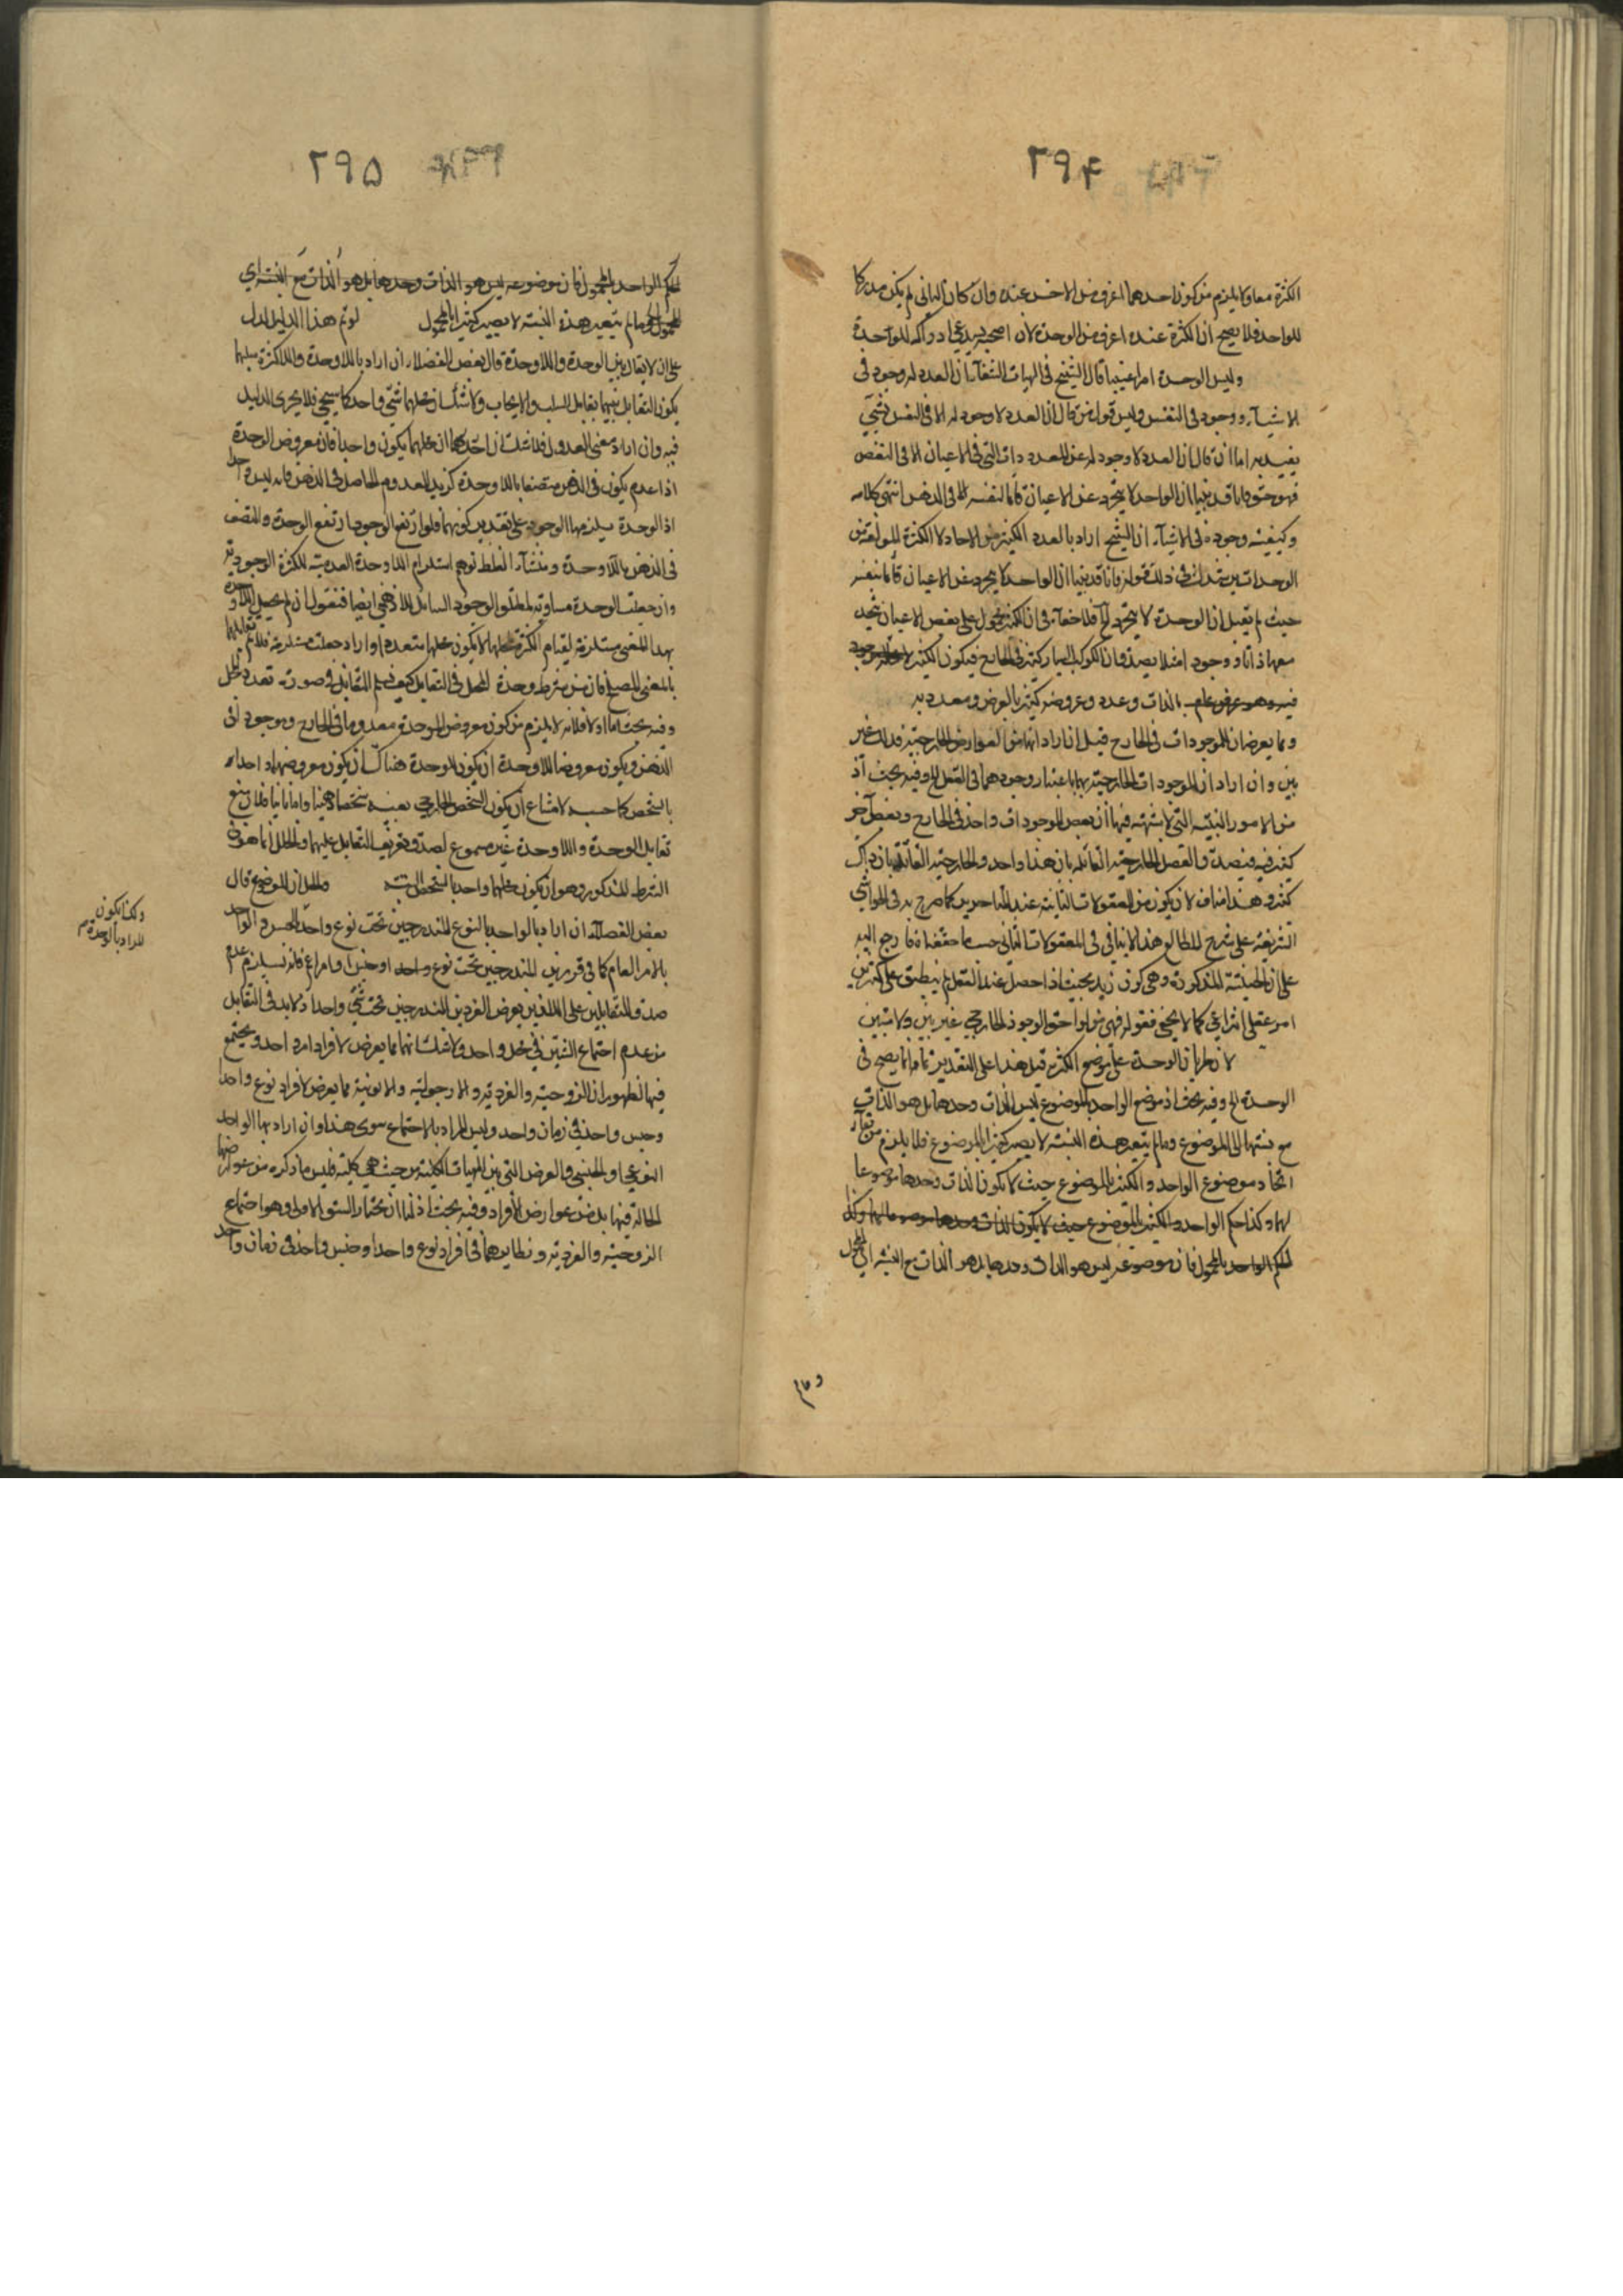 ۲۹۴
الكثرة معا ولا يلزم من كون احدهما اعرف من الاخر عنده وان كان الثانى لم يكن مدركا
للواحد فلا يصح ان الكثرة عنده اعرف من الوحدة لان
وليس الوحدة امرا عينيا قال الشيخ فى الهيات الشفاء ان العدد له وجود فى
الاشياء ووجود فى النفس وليس قول من قال ان العدد لا وجود له الا فى النفس بشئ
يعتد به اما ان قال ان العدد لا وجود له عن المعدودات التى فى الاعيان الا فى النفس
فهو حق فانا قد بينا ان الواحد لا يتجرد عن الاعيان قائما بنفسه الا فى الذهن انتهى كلامه
وكيفية وجوده فى الاشياء ان الشيخ اراد بالعدد الكثير من الاحاد لا الكثرة المؤلفة من
الوحدات يرشدك فى ذلك قوله فانا قد بينا ان الواحد لا يتجرد عن الاعيان قائما بنفسه
حيث لم يقل ان الوحدة لا يتجرد الخ فلا خفاء فى ان الكثير محمول على بعض الاعيان متحد
معها ذاتا ووجودا مثلا يصدق ان الكواكب السيار كثيرة فى الخارج فيكون الكثير
بالذات وعدد وعروضه كثير بالعرض ومعدود به
ومما يعرضان للموجودات فى الخارج قيل ان اراد انهما من العوارض الخارجية فذلك غير
بين وان اراد ان الموجودات الخارجية بهما باعتبار وجودهما فى العقل الخ وفيه بحث اذ
من الامور البينة التى لا شبهة فيها ان بعض الموجودات واحد فى الخارج وبعض آخر
كثير فيه فيصدق القضية الخارجية القائلة بان هذا واحد والخارجية القائلة بان ذاك
كثير وهذا مناف لان يكون من المعقولات الثانية عند المتاخرين كما صرح به فى الحواشى
الشريفة على شرح المطالع وهذا لا ينافى فى المعقولات الثانى حسبما حققناه فارجع اليه
على ان الحيثية المذكورة وهى كون زيد بحيث اذا حصل عند العقل لم ينطبق على كثيرين
امر عقلى انتزاعى كما لا يخفى فقوله فهى من لواحق الوجود الخارجى غير بين ولا مبين
لان طريان الوحدة على موضع الكثرة قيل هذا على التقدير تمامه انما يصح فى
الوحدة الخ وفيه بحث اذ موضع الواحد بالموضوع ليس الذات وحدها بل هو الذات
مع نسبتها الى الموضوع وما لم يتغير هذه النسبة لا يصير كثيرا بالموضوع فلا يلزم
اتحاد موضوع الواحد والكثير بالموضوع حيث لا يكون الذات وحدها موضوعا
لهما وكذا حكم الواحد والكثير بالموضوع حيث لا يكون الذات وحدها موضوعا لهما وكذا
حكم الواحد بالمحمول فان موضوعه ليس هو الذات وحدها بل هو الذات مع النسبة الى المحمول
۲۹۵
حكم الواحد بالمحمول فان موضوعه ليس هو الذات وحدها بل هو الذات مع النسبة الى
المحمول وما لم يتغير هذه النسبة لا يصير كثيرا بالمحمول لو تم هذا الدليل لدل
على ان لا تقابل بين الوحدة واللاوحدة قال بعض الفضلاء ان اراد باللاوحدة واللاكثرة سلبهما
يكون التقابل بينهما تقابل السلب والايجاب ولا شك ان محلهما شئ واحد كما سيجئ فلا يجرى الدليل
فيه وان اراد معنى العدول فلا شك ان احد محلهما يكون واحدا فان معروض الوحدة
اذا عدم يكون فى الذهن متصفا باللاوحدة كزيد المعدوم الحاصل فى الذهن فانه ليس واحدا
اذ الوحدة يلزمها الوجود على تقدير كونهما فلو ارتفع الوجود ارتفع الوحدة والمتصف
فى الذهن باللاوحدة ومنشاء الغلط توهم استلزام اللاوحدة العدمية للكثرة الوجودية
وان جعلت الوحدة مساوقة لمطلق الوجود الشامل للذهنى ايضا فنقول ان
بهذا المعنى مستلزمة لقيام الكثرة بمحلها لا يكون محلها متعددا وان اراد جعلت مستلزمة فلا تم تقابلهما
بالمعنى المصطلح فان من شرطه وحدة المحل فى التقابل كيف تم التقابل فى صورة تعدد المحل
وفيه بحث اما اولا فلانه لا يلزم من كون معروض الوحدة معدوما فى الخارج وموجودا فى
الذهن ويكون معروضا للاوحدة ان يكون للوحدة هناك ان يكون معروضها واحدا
بالشخص كما حسبه لامتناع ان يكون الشخص الخارجى بعينه شخصا ذهنيا واما ثانيا فلان منع
تقابل الوحدة واللاوحدة غير مسموع لصدق تعريف التقابل عليهما والخلل انما هو فى
الشرط المذكور وهو ان يكون محلهما واحدا بالشخص البتة والحال ان الموضوع قال
بعض الفضلاء ان اراد بالواحد بالنوع المندرجين تحت نوع واحد بالجنس والواحد
بالامر العام كما فى قرينيه المندرجين تحت نوع واحد او جنس او امر اعم فانه يستلزم عدم
صدق المتقابلين على اللذين يعرض الفردين المندرجين تحت شئ واحد اذ لا بد فى التقابل
من عدم اجتماع الشيئين فى محل واحد ولا شك انهما مما يعرض لافراد امر واحد ويجتمع
فيها لظهور ان الزوجية والفردية والرجولية والانوثية مما يعرض لافراد نوع واحد
وجنس واحد فى زمان واحد وليس المراد بالاجتماع سوى هذا وان اراد بها الواحد
النوعى او الجنسى والعرض التى بين المهيات الكلية من حيث هى كلية فليس ما ذكره من عوارضها
الحالة فيها بل من عوارض الافراد وفيه بحث اذ لنا ان نختار الشق الاول وهو اجتماع
الزوجية والفردية ونظايرهما فى افراد نوع واحد او جنس واحد فى زمان واحد
ولكنا يكون
المراد بالوحدة